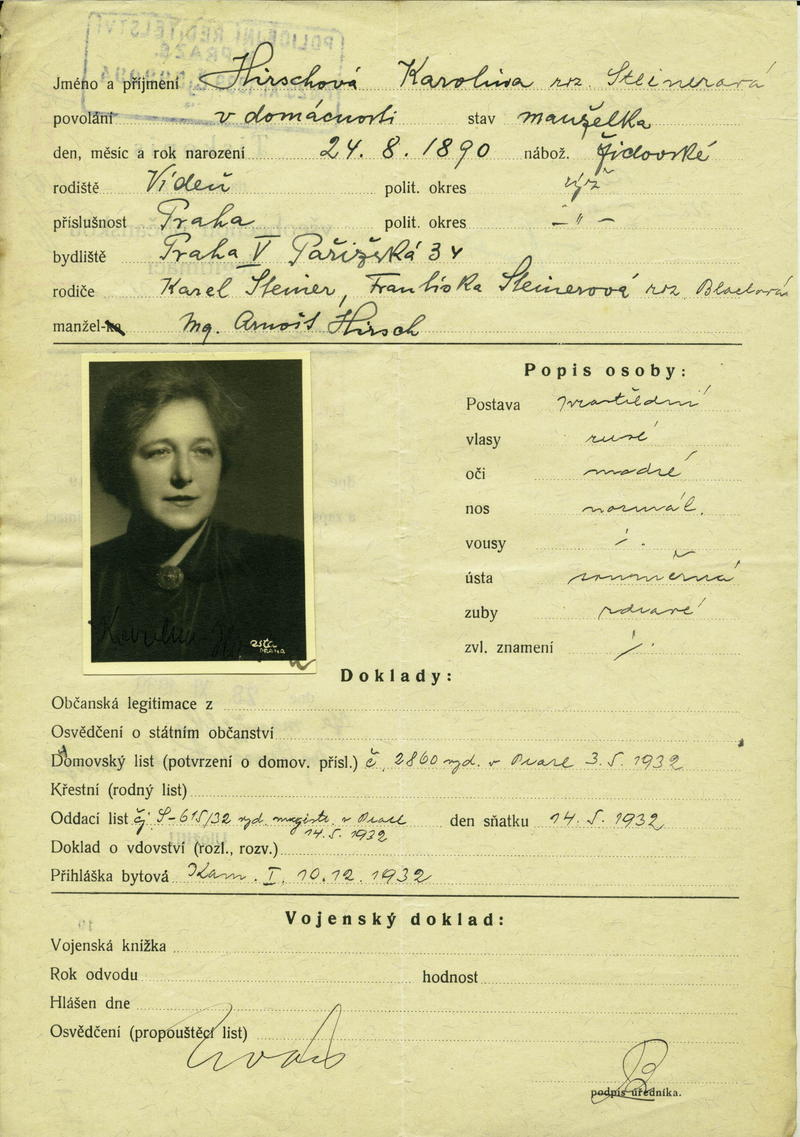 POLICEJNÍ ŘEDITELSTVÍ
Jméno a příjmení Hirschová Karolina roz. Steinerová
povolání v domácnosti stav manželka
den, měsíc a rok narození 24. 8. 1890 nábož. židovské
rodiště Vídeň polit. okres
příslušnost Praha polit. okres - " -
bydliště Praha V Pařížská 34
rodiče Karel Steiner, Františka Steinerová roz.
manžel-ka Arnošt Hirsch
Popis osoby:
Postava prostřední
vlasy rusé
oči modré
nos normál.
vousy
ústa souměrná
zuby zdravé
zvl. znamení
PRAHA
Doklady:
Občanská legitimace z
Osvědčení o státním občanství
Domovský list (potvrzení o domov. přísl.) č. 2860 vyd. v Praze 3. 5. 1932
Křestní (rodný list)
Oddací list čj S-615/32 vyd. magistr. v Praze den sňatku 14. 5. 1932
14. 5. 1932
Doklad o vdovství (rozl., rozv.)
Přihláška bytová Kom. I. 10. 12. 1932
Vojenský doklad:
Vojenská knížka
Rok odvodu hodnost
Hlášen dne
Osvědčení (propouštěcí list)
podpis úředníka.